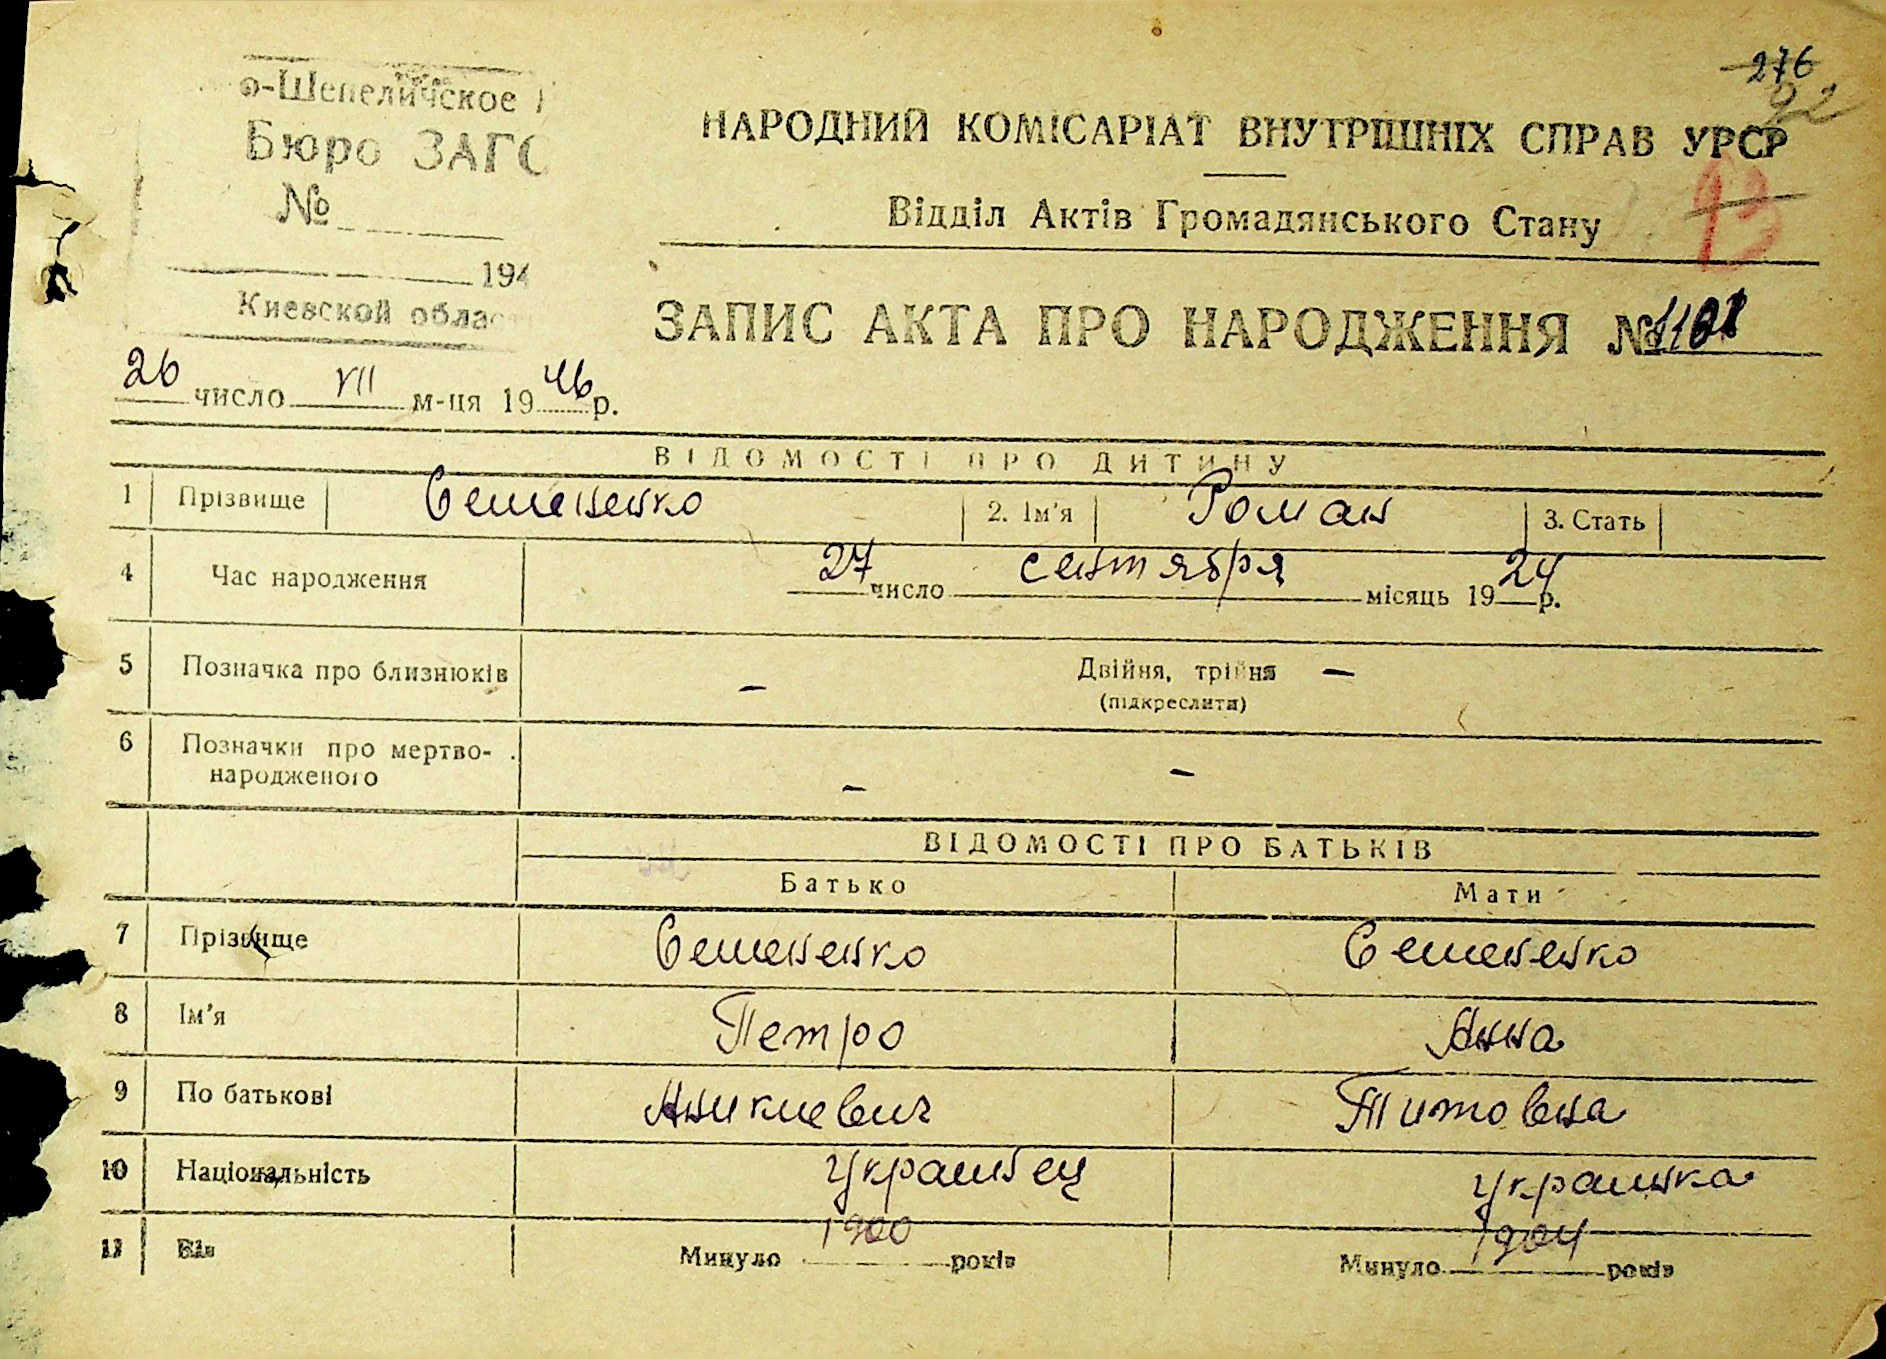 276
92
о-Шепеличское
Бюро ЗАГС
№
194
Киевской облас
НАРОДНИЙ КОМІСАРІАТ ВНУТРІШНІХ СПРАВ УРСР
13
Відділ Актів Громадянського Стану
ЗАПИС АКТА ПРО НАРОДЖЕННЯ №
26 число VII м-ця 1946 р.
ВІДОМОСТІ ПРО ДИТИНУ
1 Прізвище Семененко 2. Ім'я Роман 3. Стать
4 Час народження 27 число сентября місяць 1924 р.
5 Позначка про близнюків – Двійня, трійня –
(підкреслити)
6 Позначки про мертво-
народженого – –
ВІДОМОСТІ ПРО БАТЬКІВ
Батько Мати
7 Прізвище Семененко Семененко
8 Ім'я Петро Анна
9 По батькові Аникиевич Титовна
10 Національність Украинец Украинка
11 Вік Минуло 1900 років Минуло 1904 років